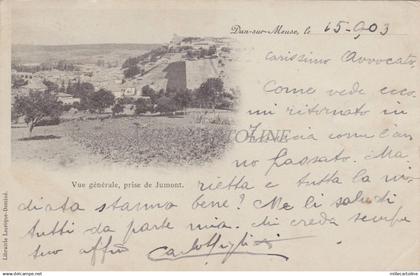 Dun-sur-Meuse, le 15-9-03
Carissimo Avvocato,
Come vede ecco
mi ritornato in
Francia come l'an
no passato. Ma
rietta e tutta la mi
diata stanno bene? Me li saluti
tutti da parte mia. Mi creda sempre
suo affmo Carlo
Vue générale, prise de Jumont.
Librairie Lecrêque-Denisé.
www.martoline.com